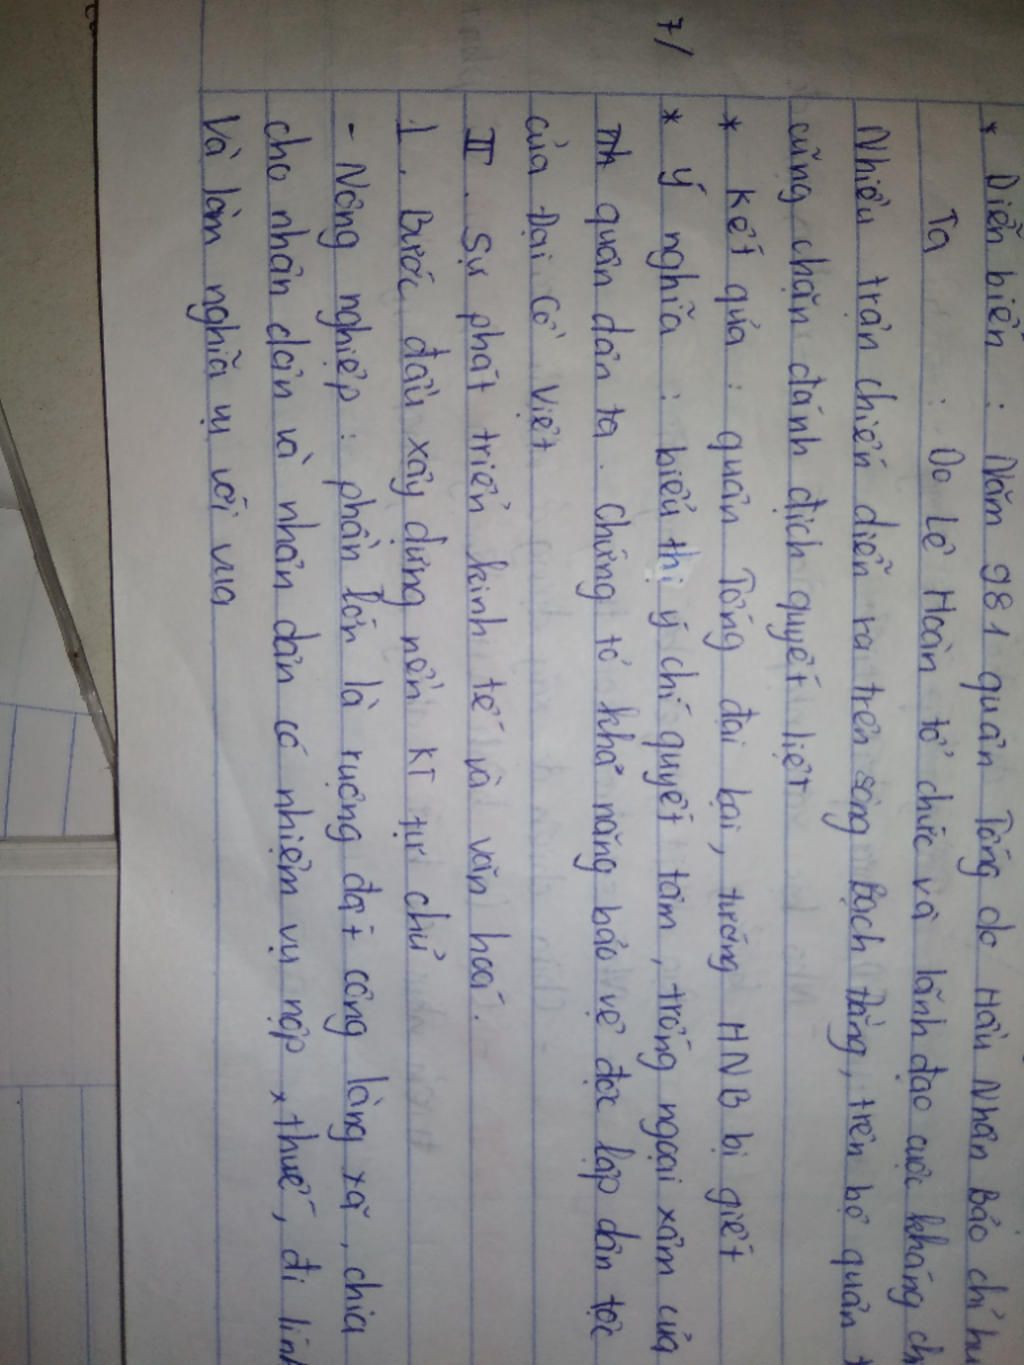 * Diễn biến : Năm 981 quân Tống do Hầu Nhân Bảo chỉ hu
Ta : Do Lê Hoàn tổ chức và lãnh đạo cuộc kháng ch
Nhiều trận chiến diễn ra trên sông Bạch Đằng, trên bộ quân t
cũng chặn đánh địch quyết liệt
* Kết quả : quân Tống đại bại, tướng HNB bị giết
7/ * Ý nghĩa : biểu thị ý chí quyết tâm, trống ngoại xâm của
quân dân ta. Chứng tỏ khả năng bảo vệ độc lập dân tộc
của Đại Cồ Việt
II. Sự phát triển kinh tế và văn hoá.
1. Bước đầu xây dựng nền KT tự chủ
- Nông nghiệp : phần lớn là ruộng đất công làng xã, chia
cho nhân dân và nhân dân có nhiệm vụ nộp thuế, đi lính
Và làm nghĩa vụ với vua